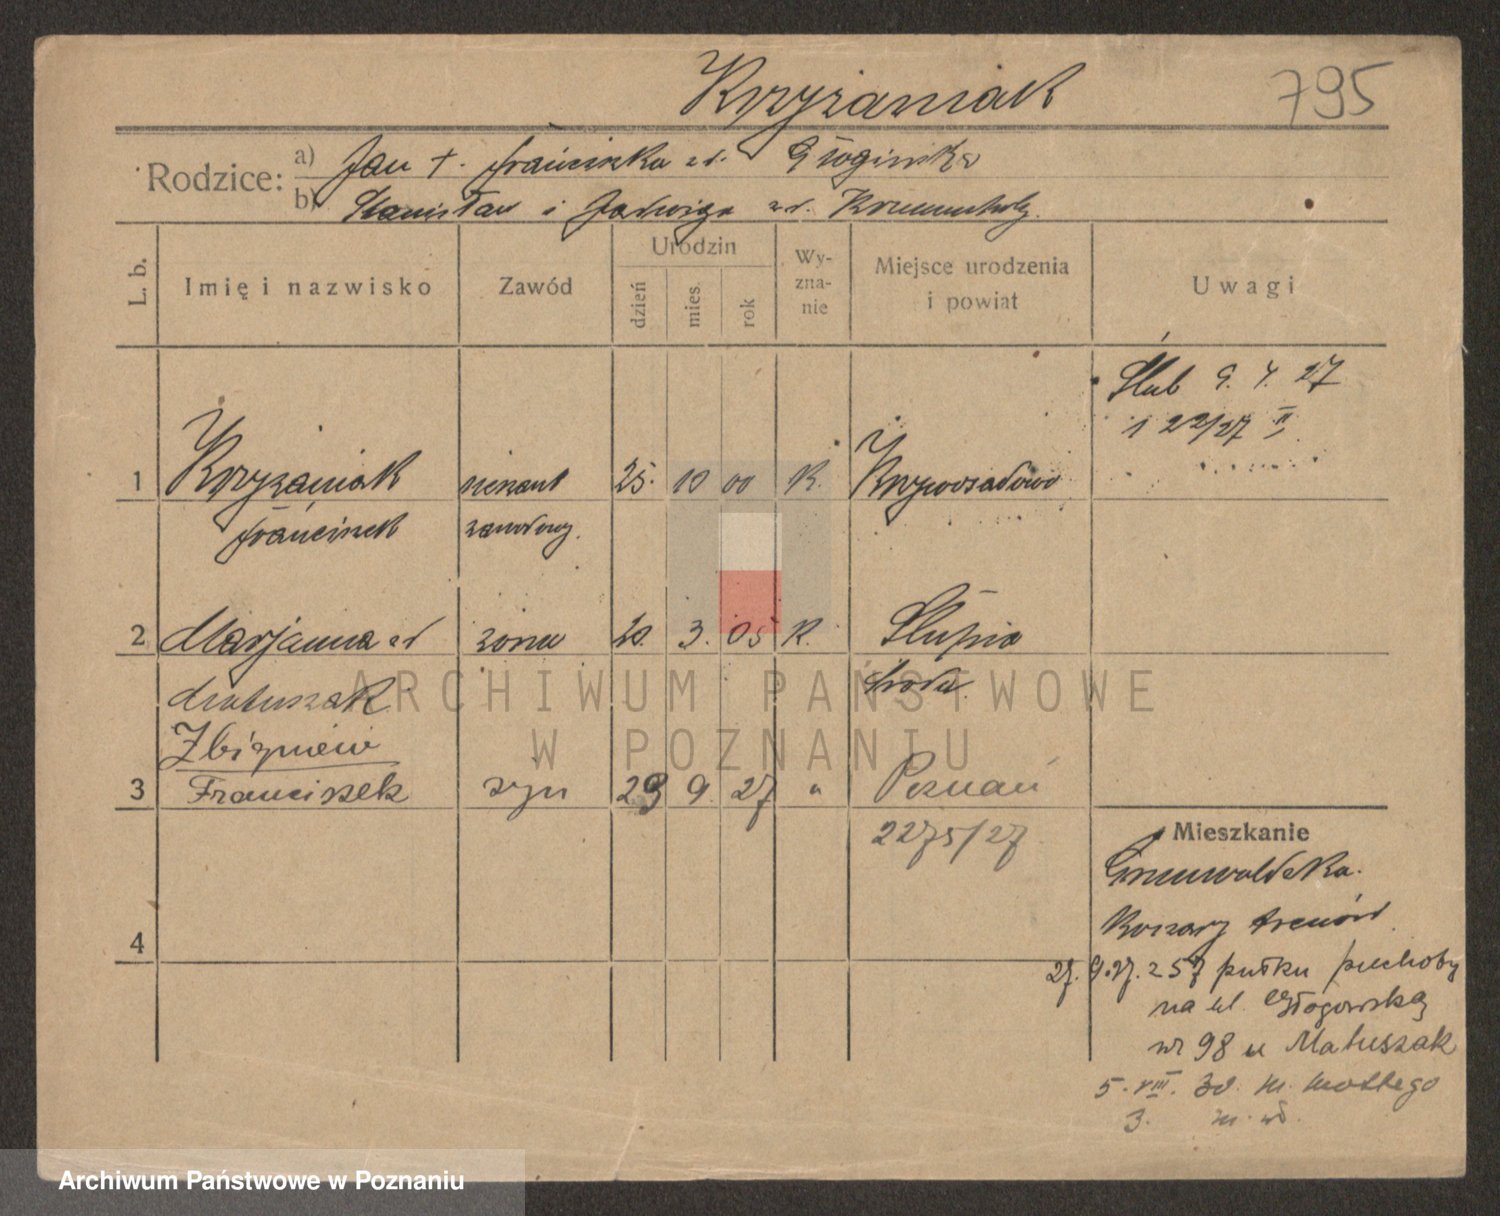 Krzyżaniak 795
Rodzice: a) Jan †. Franciszka zd. Głogińska
b) Stanisław i Jadwiga zd. Krummholz
L. b. Imię i nazwisko Zawód Urodzin dzień mies. rok Wy-zna-nie Miejsce urodzenia i powiat Uwagi
Ślub 9. 4. 27
1 22/27 II
1 Krzyżaniak sierżant 25. 10 00 K. Krzywosądowo
Franciszek zawodowy.
2 Marjanna zd żona 20. 3. 05 K. Słupia
Matuszak Środa.
Zbigniew
3 Franciszek syn 23 9. 27 " Poznań
2275/27
Mieszkanie
Grunwaldzka.
Koszary trenów.
4
27. 9. 27. z 57 pułku piechoty
na ul. Głogowską
nr 98 u Matuszak
5. VIII. 30.
3.
ARCHIWUM PAŃSTWOWE
W POZNANIU
Archiwum Państwowe w Poznaniu